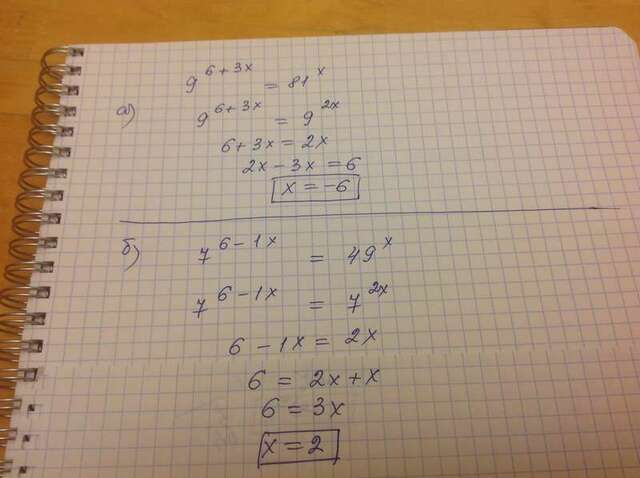 а) 9^(6+3x) = 81^x
9^(6+3x) = 9^(2x)
6+3x = 2x
2x-3x = 6
x = -6
б) 7^(6-1x) = 49^x
7^(6-1x) = 7^(2x)
6-1x = 2x
6 = 2x+x
6 = 3x
x = 2